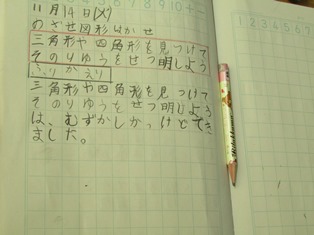 11月14日(火)
めざせ図形はかせ
三角形や四角形を見つけて
そのりゆうをせつ明しよう
ふりかえり
三角形や四角形を見つけて
そのりゆうをせつ明しよう
は、むずかしかっけどでき
ました。
1 2 3 4 5 6 7 8 9